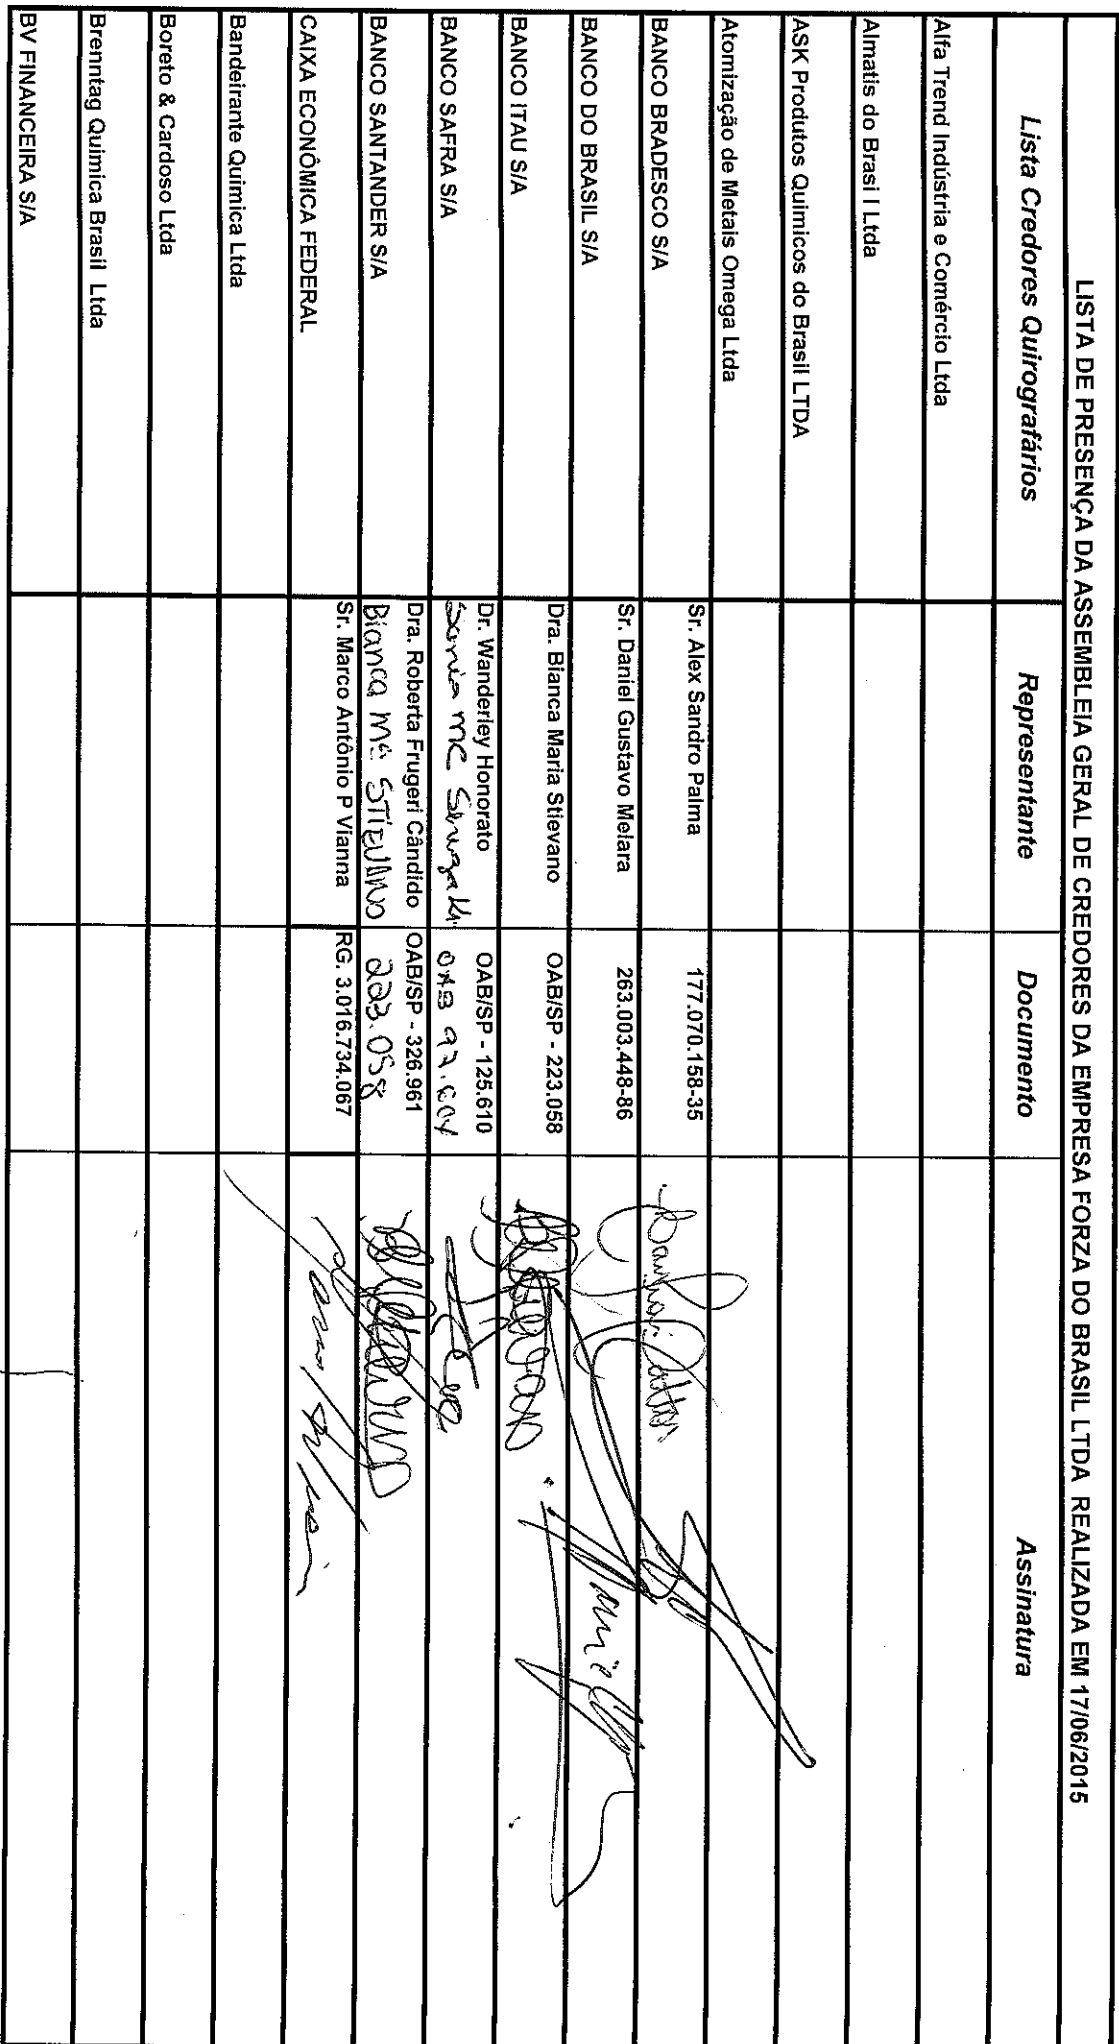 LISTA DE PRESENÇA DA ASSEMBLEIA GERAL DE CREDORES DA EMPRESA FORZA DO BRASIL LTDA REALIZADA EM 17/06/2015
Lista Credores Quirografários Representante Documento Assinatura
Alfa Trend Indústria e Comércio Ltda
Almatis do Brasi l Ltda
ASK Produtos Quimicos do Brasil LTDA
Atomização de Metais Omega Ltda
BANCO BRADESCO S/A Sr. Alex Sandro Palma 177.070.158-35
BANCO DO BRASIL S/A Sr. Daniel Gustavo Melara 263.003.448-86
BANCO ITAU S/A Dra. Bianca Maria Stievano OAB/SP - 223.058
BANCO SAFRA S/A Dr. Wanderley Honorato OAB/SP - 125.610
Sonia MC OAB
BANCO SANTANDER S/A Dra. Roberta Frugeri Cândido OAB/SP - 326.961
Bianca Mª STIEVANO 223.058
CAIXA ECONÔMICA FEDERAL Sr. Marco Antônio P Vianna RG. 3.016.734.067
Bandeirante Quimica Ltda
Boreto & Cardoso Ltda
Brenntag Quimica Brasil Ltda
BV FINANCEIRA S/A